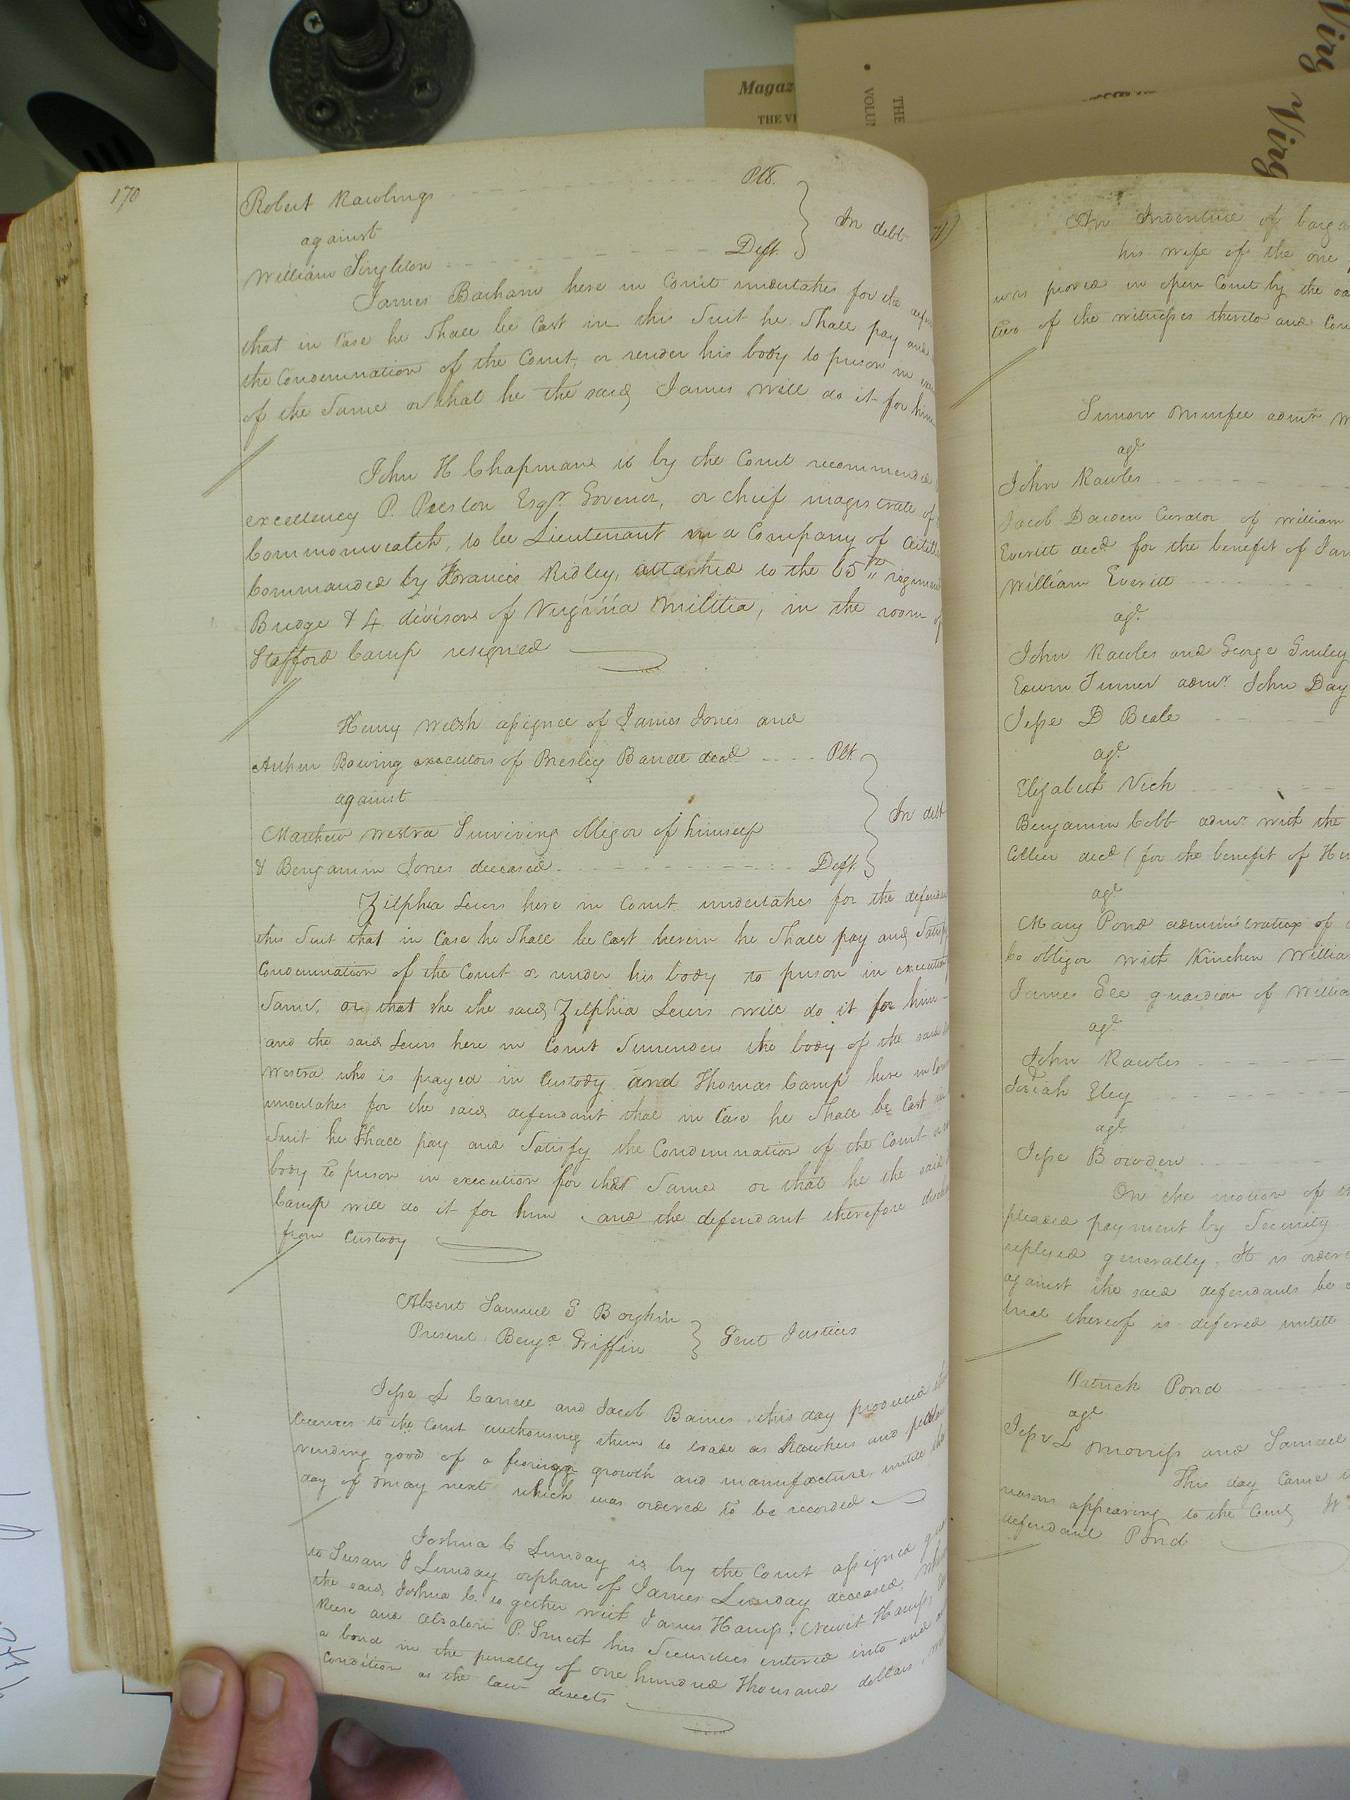 Magaz
THE VI
THE
VOLUM
Virg
Virg
170
Robert Rawlings Plt.
against
William Singleton Deft.
In debt
James Barham here in Court undertakes for the defen
that in Case he Shall be Cast in this Suit he Shall pay and
the Condemnation of the Court, or render his body to prison in exec
of the Same or that he the said James will do it for him
John H Chapman is by the Court recommended
excellency P. Preston Esqr. Govenor, or chief magistrate of
Commonwealth, to be Lieutenant in a Company of Artill
Commanded by Francis Ridley, attached to the 65th regiment
Bridge & 4 division of Virginia Militia, in the room of
Stafford Camp resigned
Henry Welsh assignee of James Jones and
Arthur Bowing executors of Presley Barrett decd Plt.
against
Matthew Westra Surviving obligor of himself
& Benjamin Jones deceased Deft
In debt
Zilphia Lewis here in Court undertakes for the defendan
this Suit that in Case he Shall be Cast herein he Shall pay and Satisfy
Condemnation of the Court or render his body to prison in execution
Same, or that she the said Zilphia Lewis will do it for him
and the said Lewis here in Court Surrenders the body of the said
Westra who is prayed in Custody and Thomas Camp here in Cou
undertakes for the said defendant that in Case he Shall be Cast in
Suit he Shall pay and Satisfy the Condemnation of the Court
body to prison in execution for that Same or that he the said
Camp will do it for him and the defendant therefore disch
from Custody
Absent Samuel G Boykin
Present Benja Griffin
Gent Justices
Jesse L Carree and Jacob Barnes this day produced
licences to the Court authorising them to trade as Hawkers and pedlar
vending good of a foreign growth and manufacture untill the
day of May next which was ordered to be recorded
Joshua C Lunday is by the Court assigned gua
to Susan J Lunday orphan of James Lunday deceased, where
the said Joshua C together with James Harris, Newit Harris,
Reese and Absalom P. Smith his Securities entered into and
a bond in the penalty of one hundred thousand dollars
Condition as the law directs
71)
An Indenture of barga
his wife of the one
was proved in open Court by the oa
two of the witnesses thereto and
Simon Murfee admr
agt
John Rawles
Jacob Darden Curator of William
Everitt decd for the benefit of Jam
William Everitt
agt
John Rawles and George Gurley
Edwin Turner admr John Day
Jesse D Beale
agt
Elizabeth Vick
Benjamin Cobb admr with the
Collier decd (for the benefit of Hen
agt
Mary Pond administratrix of
co obligor with Kinchen William
James Gee guardian of Willia
agt
John Rawles
Josiah Eley
agt
Jesse Bowden
On the motion of th
pleaded payment by Security
replied generally. It is ordere
against the said defendants be
trial thereof is defered untill
Patrick Pond
agt
Jesse L Morriss and Samuel
This day Came
reason appearing to the Court
defendant Pond